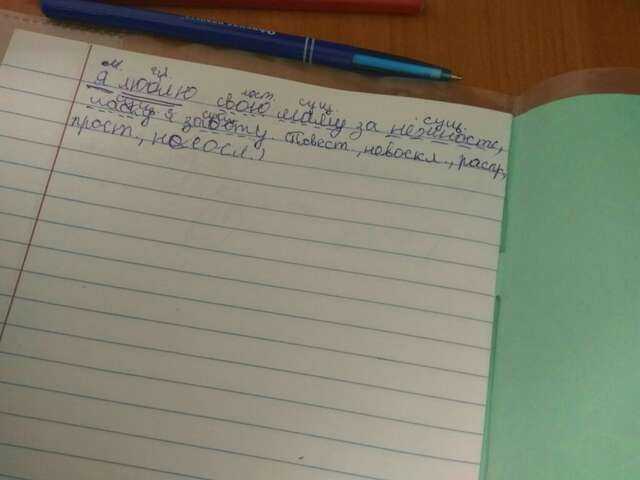 м. гл. мест. сущ. сущ.
Я люблю свою маму за нежность,
ласку и заботу (Повест., невоскл., распр,
прост, неосл.)